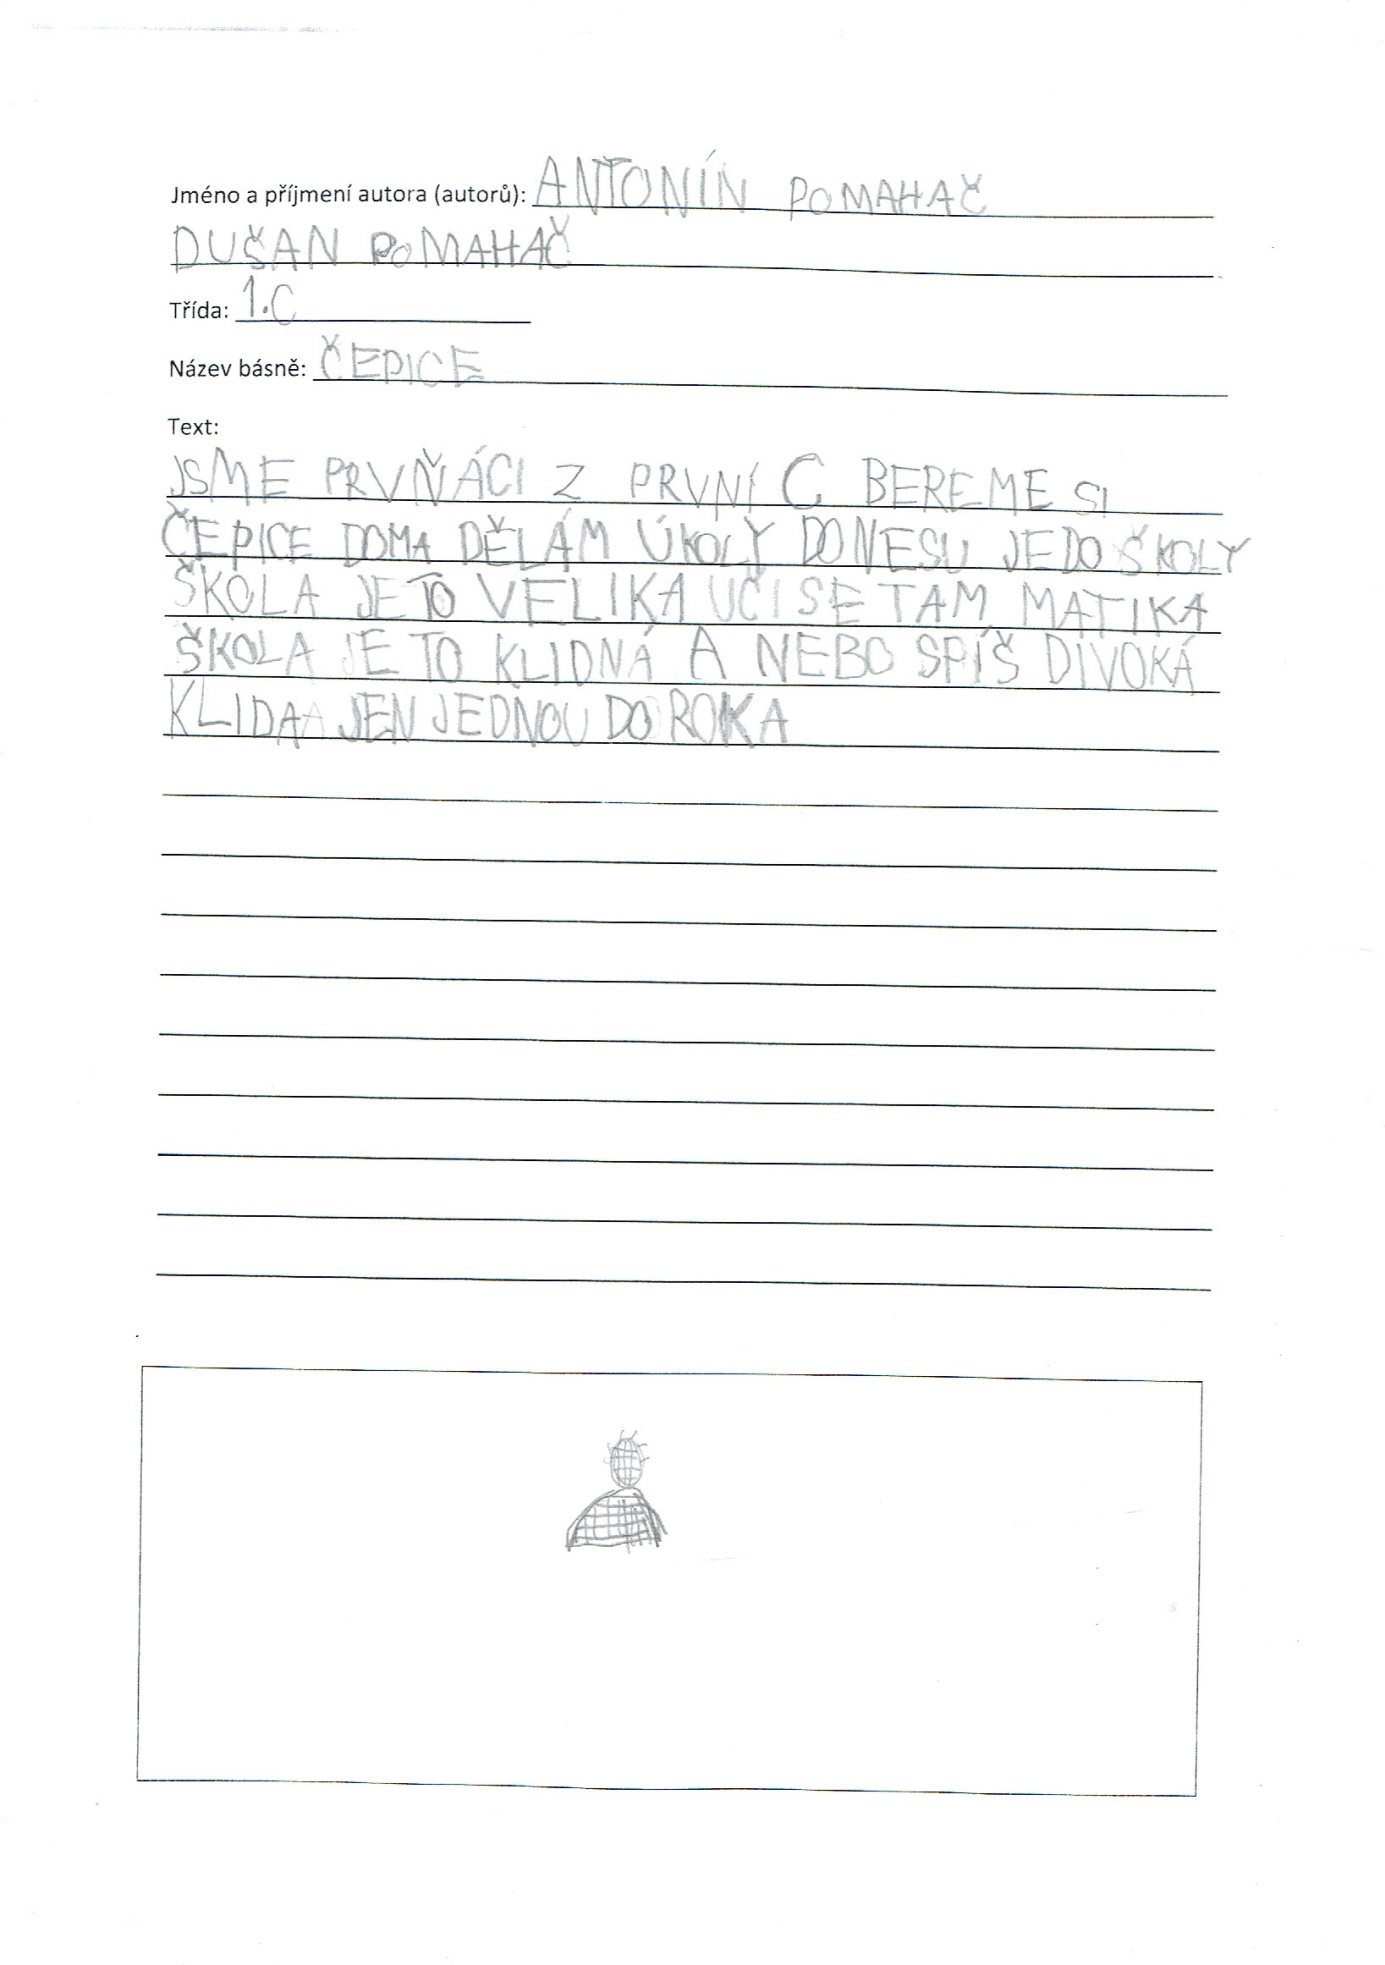 Jméno a příjmení autora (autorů): ANTONÍN POMAHAČ
DUŠAN POMAHAČ
Třída: 1.C
Název básně: ČEPICE
Text:
JSME PRVŇÁCI Z PRVNÍ C BEREME SI
ČEPICE DOMA DĚLÁM ÚKOLY DONESU JE DO ŠKOLY
ŠKOLA JE TO VELIKA UČI SE TAM MATIKA
ŠKOLA JE TO KLIDNÁ A NEBO SPÍŠ DIVOKÁ
KLIDAA JEN JEDNOU DO ROKA